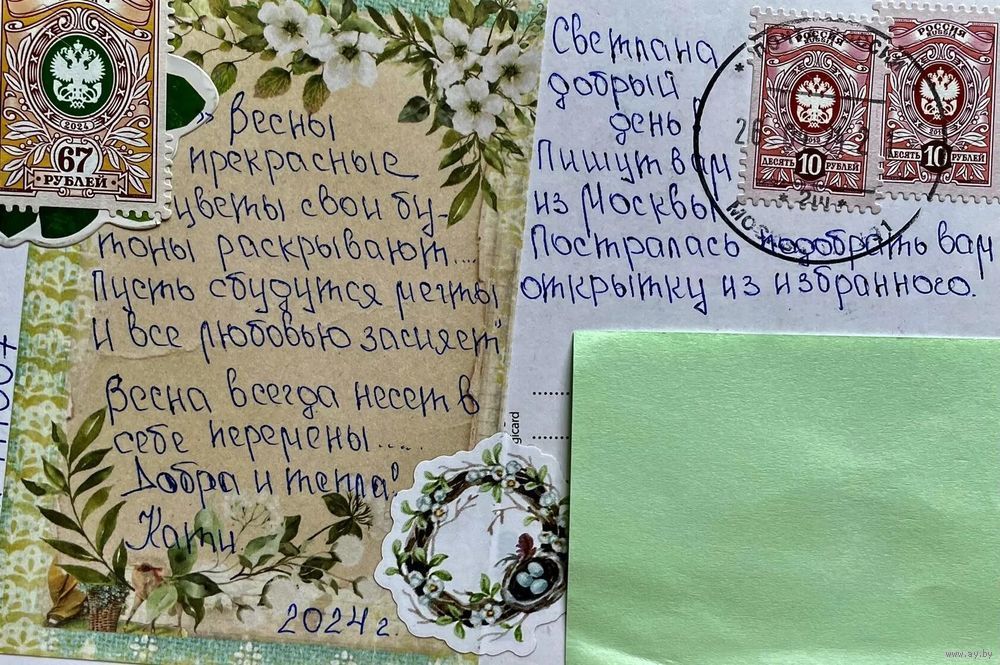 67
РУБЛЕЙ
2024
„ Весны
прекрасные
цветы свои бу-
тоны раскрывают...
Пусть сбудутся мечты
И все любовью засияет"
Весна всегда несет в
себе перемены....
Добра и тепла!
Кати
2024 г.
Светлана
добрый
день!
Пишут вам
из Москвы
Постралась подобрать вам
открытку из избранного.
РОССИЯ
ROSSIJA
10
ДЕСЯТЬ РУБЛЕЙ
РОССИЯ
ROSSIJA
10
ДЕСЯТЬ РУБЛЕЙ
gicard
www.ay.by